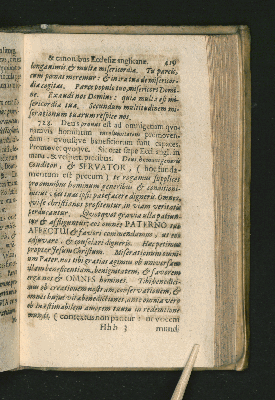 & canonibus Ecclesiæ anglicanæ. 419
longanimis & multæ misericordiæ. Tu parcis,
cum pœnas meremur: & in ira tua de misericor-
dia cogitas. Parce populo tuo, misericors Domi-
ne. Exaudi nos Domine: quia multa est mi-
sericordia tua, Secundum multitudinem mi-
serationum tuarum respice nos.
723. Deus pronus est ad omnigenam quo-
rumvis hominum
dam; quousque beneficiorum sunt capaces,
Promovet quoque. Sic orat sæpe Eccl. angl. in
matut. & vespert. precibus. Deus humani generis
Conditor, & SERVATOR, (hoc funda-
mentum est precum) te rogamus supplices
pro omnibus hominum generibus & conditioni-
bus: ut eis tuas ipsi patefacere digneris. Omnes,
quise christianos profitentur in viam veritatis
perducantur. Quotquot gravia ulla patiun-
tur & affliguntur, eos omnes PATERNO tuo
AFFECTUI & favori commendamus, ut eos
adjuvare, & consolari digneris. Hæc petimus
propter Jesum Christum. Miserationum omni-
um Pater, nos tibi gratias agimus ob universam
illam beneficentiam, benignitatem, & favorem
erga nos & OMNES homines. Tibi benedici-
mus ob creationem nostram, conservationem, &
omnes hujus vitæ benedictiones, ante omnia vero
ob inæstimabilem amorem tuum in redemtione
mundi, (contextus non patitur ut vocem
Hhh 3 mundi